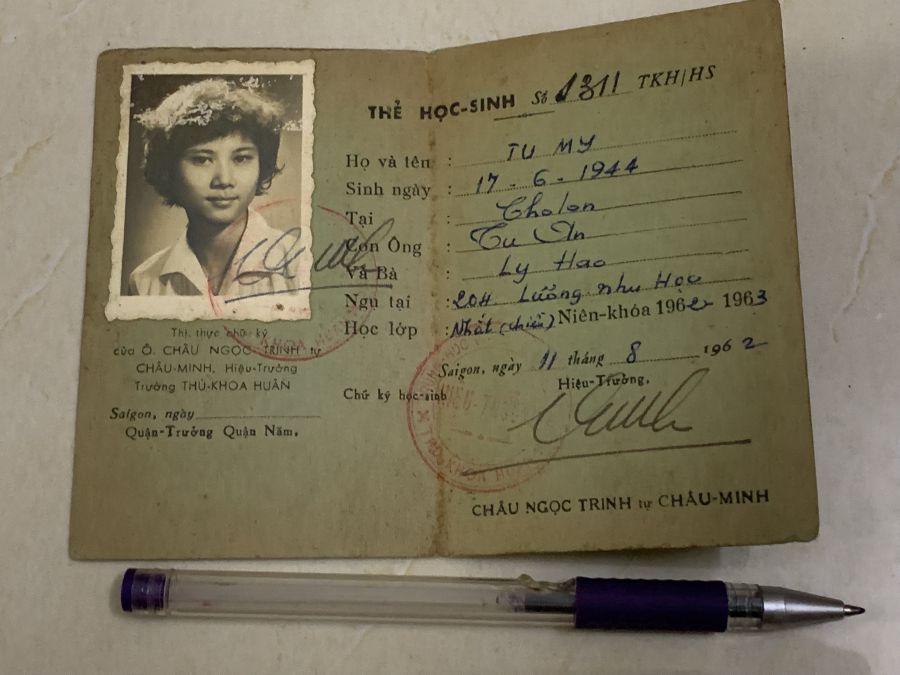 THẺ HỌC-SINH Số 1311 TKH/HS
Họ và tên : TU MY
Sinh ngày : 17 - 6 - 1944
Tại : Cholon
Con Ông : Tu An
Và Bà : Ly Hao
Ngụ tại : 204 Lương nhu Học
Học lớp : Nhất (chiều) Niên-khóa 1962 1963
Saigon, ngày 11 tháng 8 1962
Hiệu-Trưởng,
Chữ ký học-sinh
CHÂU NGỌC TRINH tự CHÂU-MINH
Thị thực chữ ký
của Ô. CHÂU NGỌC TRINH tự
CHÂU-MINH, Hiệu-Trưởng
Trường THỦ-KHOA HUÂN
Saigon, ngày
Quận-Trưởng Quận Năm,